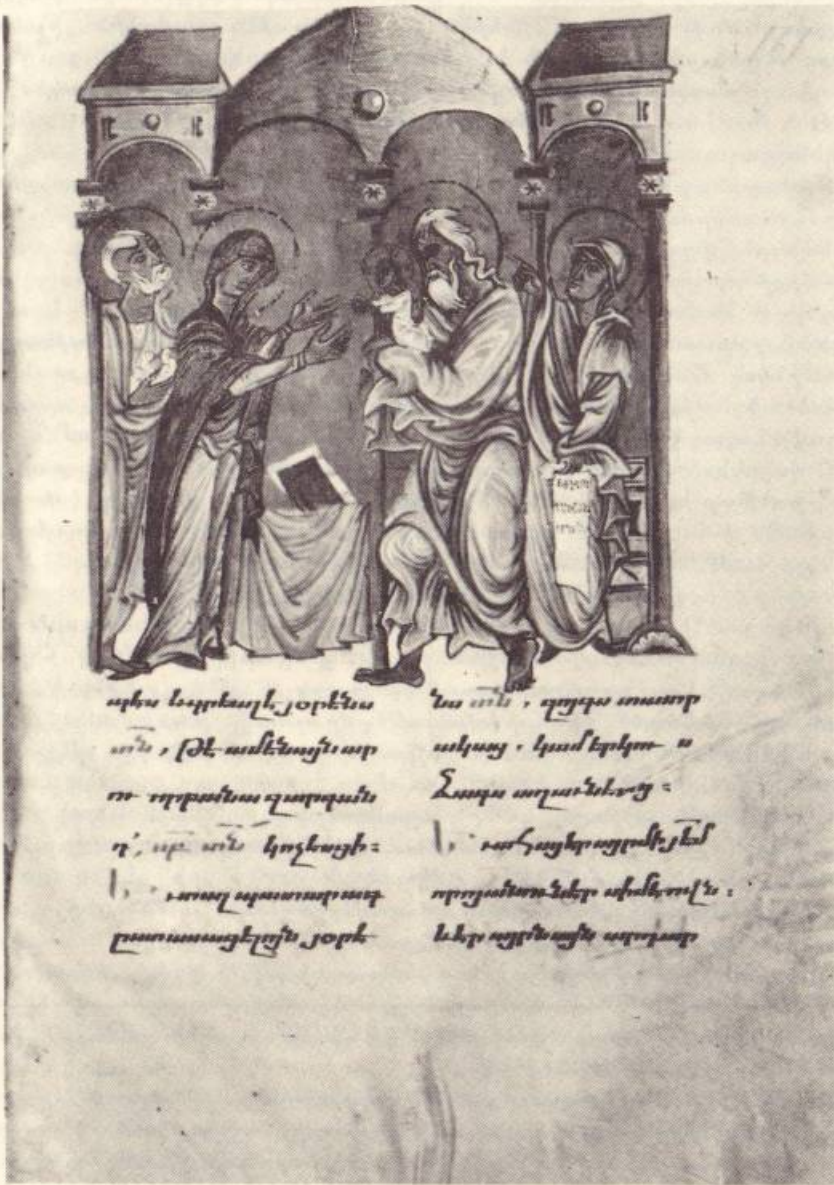 պէս եւ գրեալ է յօրէնս
տն, թէ ամենայն ար
ու որ բանա զարգան
դ, սբ տն կոչեսցի։
Եւ տալ պատարագ
ըստ ասացելոյն յօրէ
նս տն, զոյգս տատր
ակաց, կամ երկու ս
Ձագս աղաւնեաց։
Եւ ահա էր այր մի յէմ
որում անուն էր սիմէովն։
եւ էր այրն այն արդար